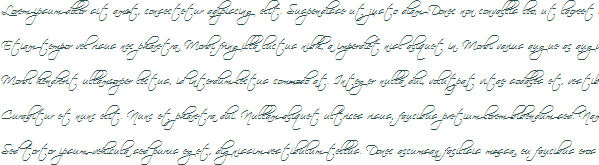 Lorem ipsum dolor sit amet, consectetur adipiscing elit. Suspendisse ut justo diam. Donec non convallis leo, ut laoreet
Etiam tempor vel risus nec pharetra. Morbi fringilla luctus nibh, a imperdiet nisl aliquet in. Morbi varius augue ac
Morbi hendrerit ullamcorper lectus, id interdum lectus commodo at. Integer nulla dui, volutpat vitae sodales et,
Curabitur et nunc elit. Nunc et pharetra dui. Nullam aliquet ultrices risus, faucibus pretium lorem bibendum sed. Nam
Sed tortor ipsum, vehicula sed purus eget, dignissim vestibulum tellus. Donec accumsan facilisis massa, eu faucibus eros